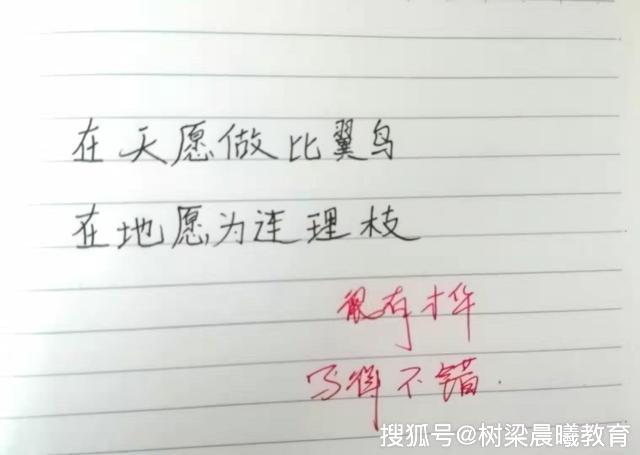 在天愿做比翼鸟
在地愿为连理枝
很有才华
写得不错.
搜狐号@树梁晨曦教育